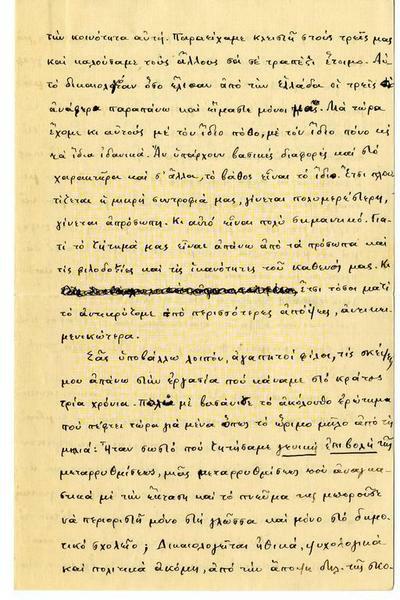 τὴν κοινότητα αὐτή. Παραείχαμε κλειστῆ στοὺς τρεῖς μας
καὶ καλούσαμε τοὺς ἄλλους σὰ σὲ τραπέζι ἕτοιμο. Αὐ-
τὸ δικαιολογ ὅσο ἔλειπαν ἀπὸ τὴν Ἑλλάδα οἱ τρεῖς
ἀνάφερα παραπάνω καὶ εἴμαστε μόνοι μας. Μὰ τώρα
ἔχομε κι αὐτοὺς μὲ τὸν ἴδιο πόθο, μὲ τὸν ἴδιο πόνο
τὰ ἴδια ἰδανικά. Ἂν ὑπάρχουν βασικὲς διαφορὲς καὶ στὸ
χαρακτῆρα καὶ σ' ἄλλα, τὸ βάθος εἶναι τὸ ἴδιο. Ἔτσι πλου-
τίζεται ἡ μικρή συντροφιά μας, γίνεται πολυμερέστερη,
γίνεται ἀπρόσωπη. Κι αὐτὸ εἶναι πολὺ σημαντικό. Για-
τὶ τὸ ζήτημά μας εἶναι ἀπάνω ἀπὸ τὰ πρόσωπα καὶ
τὶς φιλοδοξίες καὶ τὶς ἱκανότητες τοῦ καθενός μας. Κι
ἔτσι τόσοι μαζὶ
τὸ ἀντικρύζομε ἀπὸ περισσότερες ἀπόψεις, ἀντικει-
μενικώτερα.
Σᾶς ὑποβάλλω λοιπόν, ἀγαπητοὶ φίλοι, τὶς σκέψεις
μου ἀπάνω στὴν ἐργασία ποὺ κάναμε στὸ κράτος
τρία χρόνια. Πολὺ μὲ βασάνισε τὸ ἀκόλουθο ἐρώτημα
ποὺ πέφτει τώρα γιὰ μένα ὅπως τὸ ὥριμο μῆλο ἀπὸ τὴ
μηλιά: Ἦταν σωστὸ ποὺ ζητήσαμε γενικὴ ἐπιβολὴ τῆς
μεταρρυθμίσεως, μιᾶς μεταρρυθμίσεως ποὺ ἀναγκα-
στικὰ μὲ τὴν ἔκταση καὶ τὸ πνεῦμα της μποροῦσε
νὰ περιοριστῆ μόνο στὴ γλῶσσα καὶ μόνο στὸ δημο-
τικὸ σχολεῖο; Δικαιολογεῖται ἠθικά, ψυχολογικὰ
καὶ πολιτικὰ ἀκόμη, ἀπὸ τὴν ἄποψη δηλ. τῆς σκο-